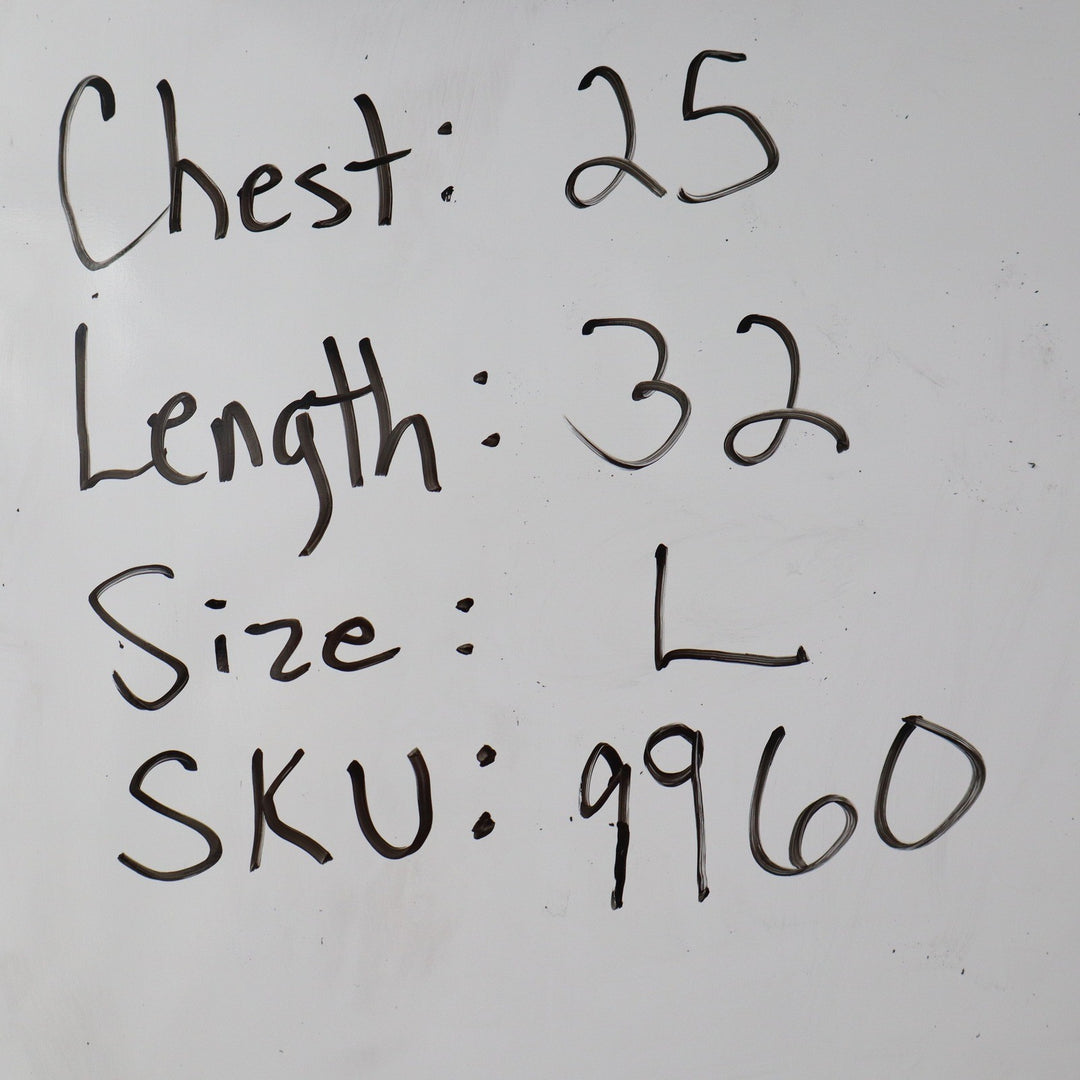 Chest: 25
Length: 32
Size: L
SKU: 9960